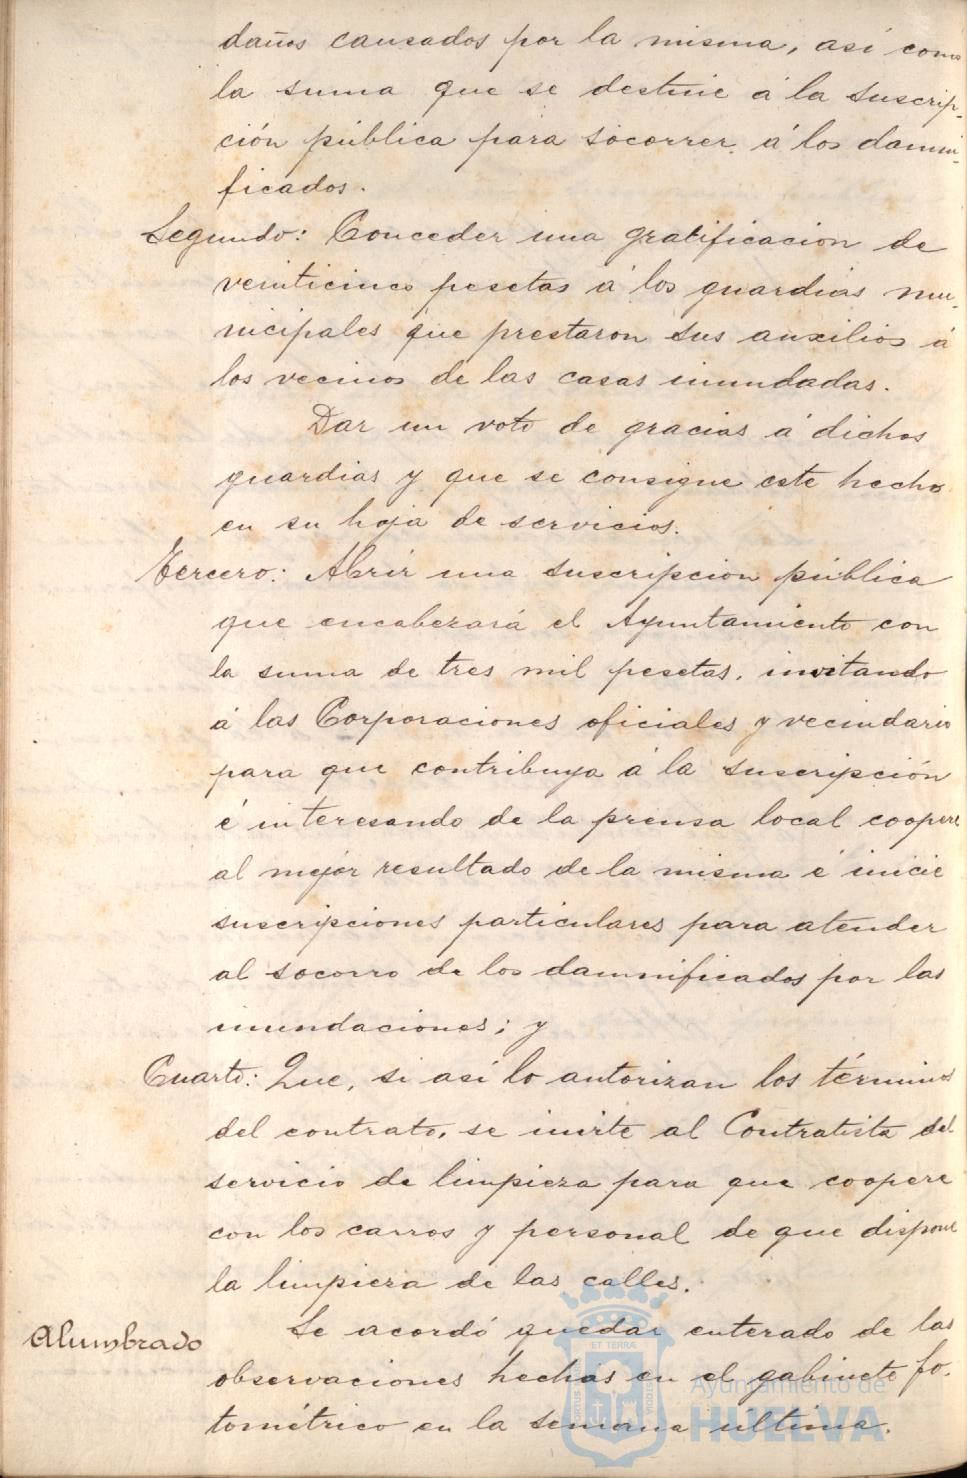 daños causados por la misma, así como
la suma que se destine á la suscrip-
ción pública para socorrer á los damni-
ficados.
Segundo: Conceder una gratificación de
veinticinco pesetas á los guardias mu-
nicipales que prestaron sus auxilios á
los vecinos de las casas inundadas.
Dar un voto de gracias á dichos
guardias y que se consigne este hecho
en su hoja de servicios.
Tercero: Abrir una suscripción pública
que encabezará el Ayuntamiento con
la suma de tres mil pesetas, invitando
á las Corporaciones oficiales y vecindario
para que contribuya á la suscripción
é interesando de la prensa local coopere
al mejor resultado de la misma é inicie
suscripciones particulares para atender
al socorro de los damnificados por las
inundaciones; y
Cuarto: Que, si así lo autorizan los términos
del contrato, se invite al Contratista del
servicio de limpieza para que coopere
con los carros y personal de que dispone
la limpieza de las calles.
Alumbrado
Se acordó quedar enterado de las
observaciones hechas en el gabinete fo-
tométrico en la semana última.
ET TERRÆ
Ayuntamiento de
HUELVA